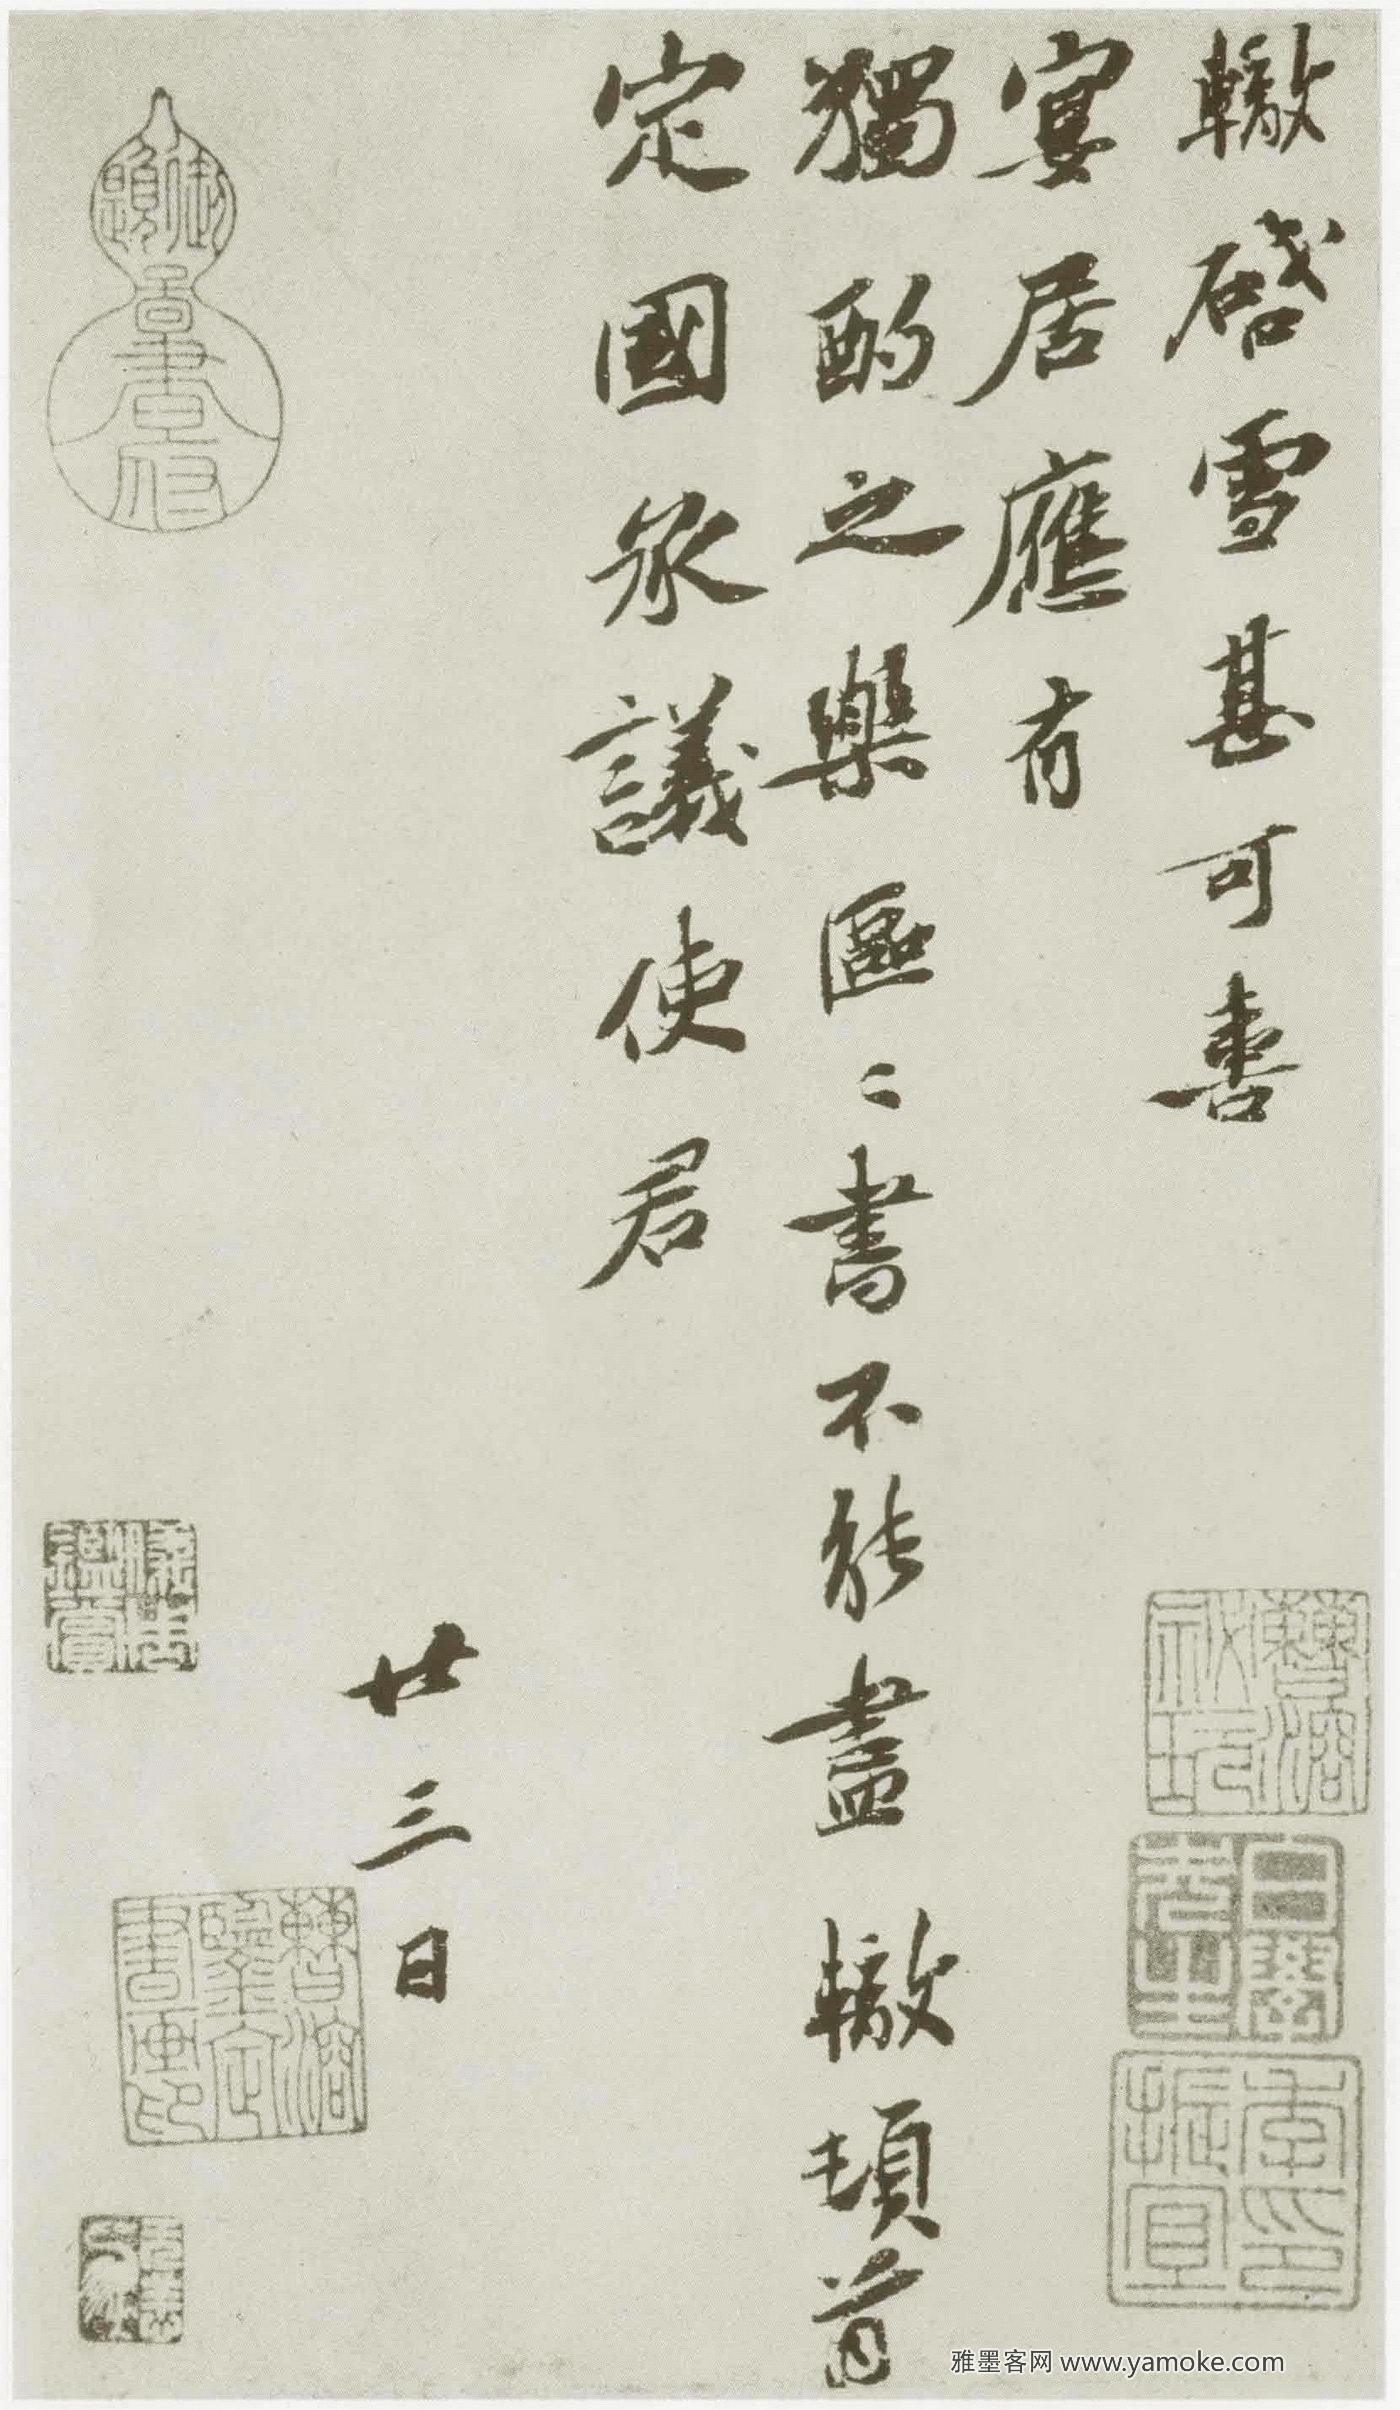 轍啓雪甚可喜
宴居應有
獨酌之樂區〻書不能盡轍頓首
定國承議使君
廿三日
雅墨客网 www.yamoke.com